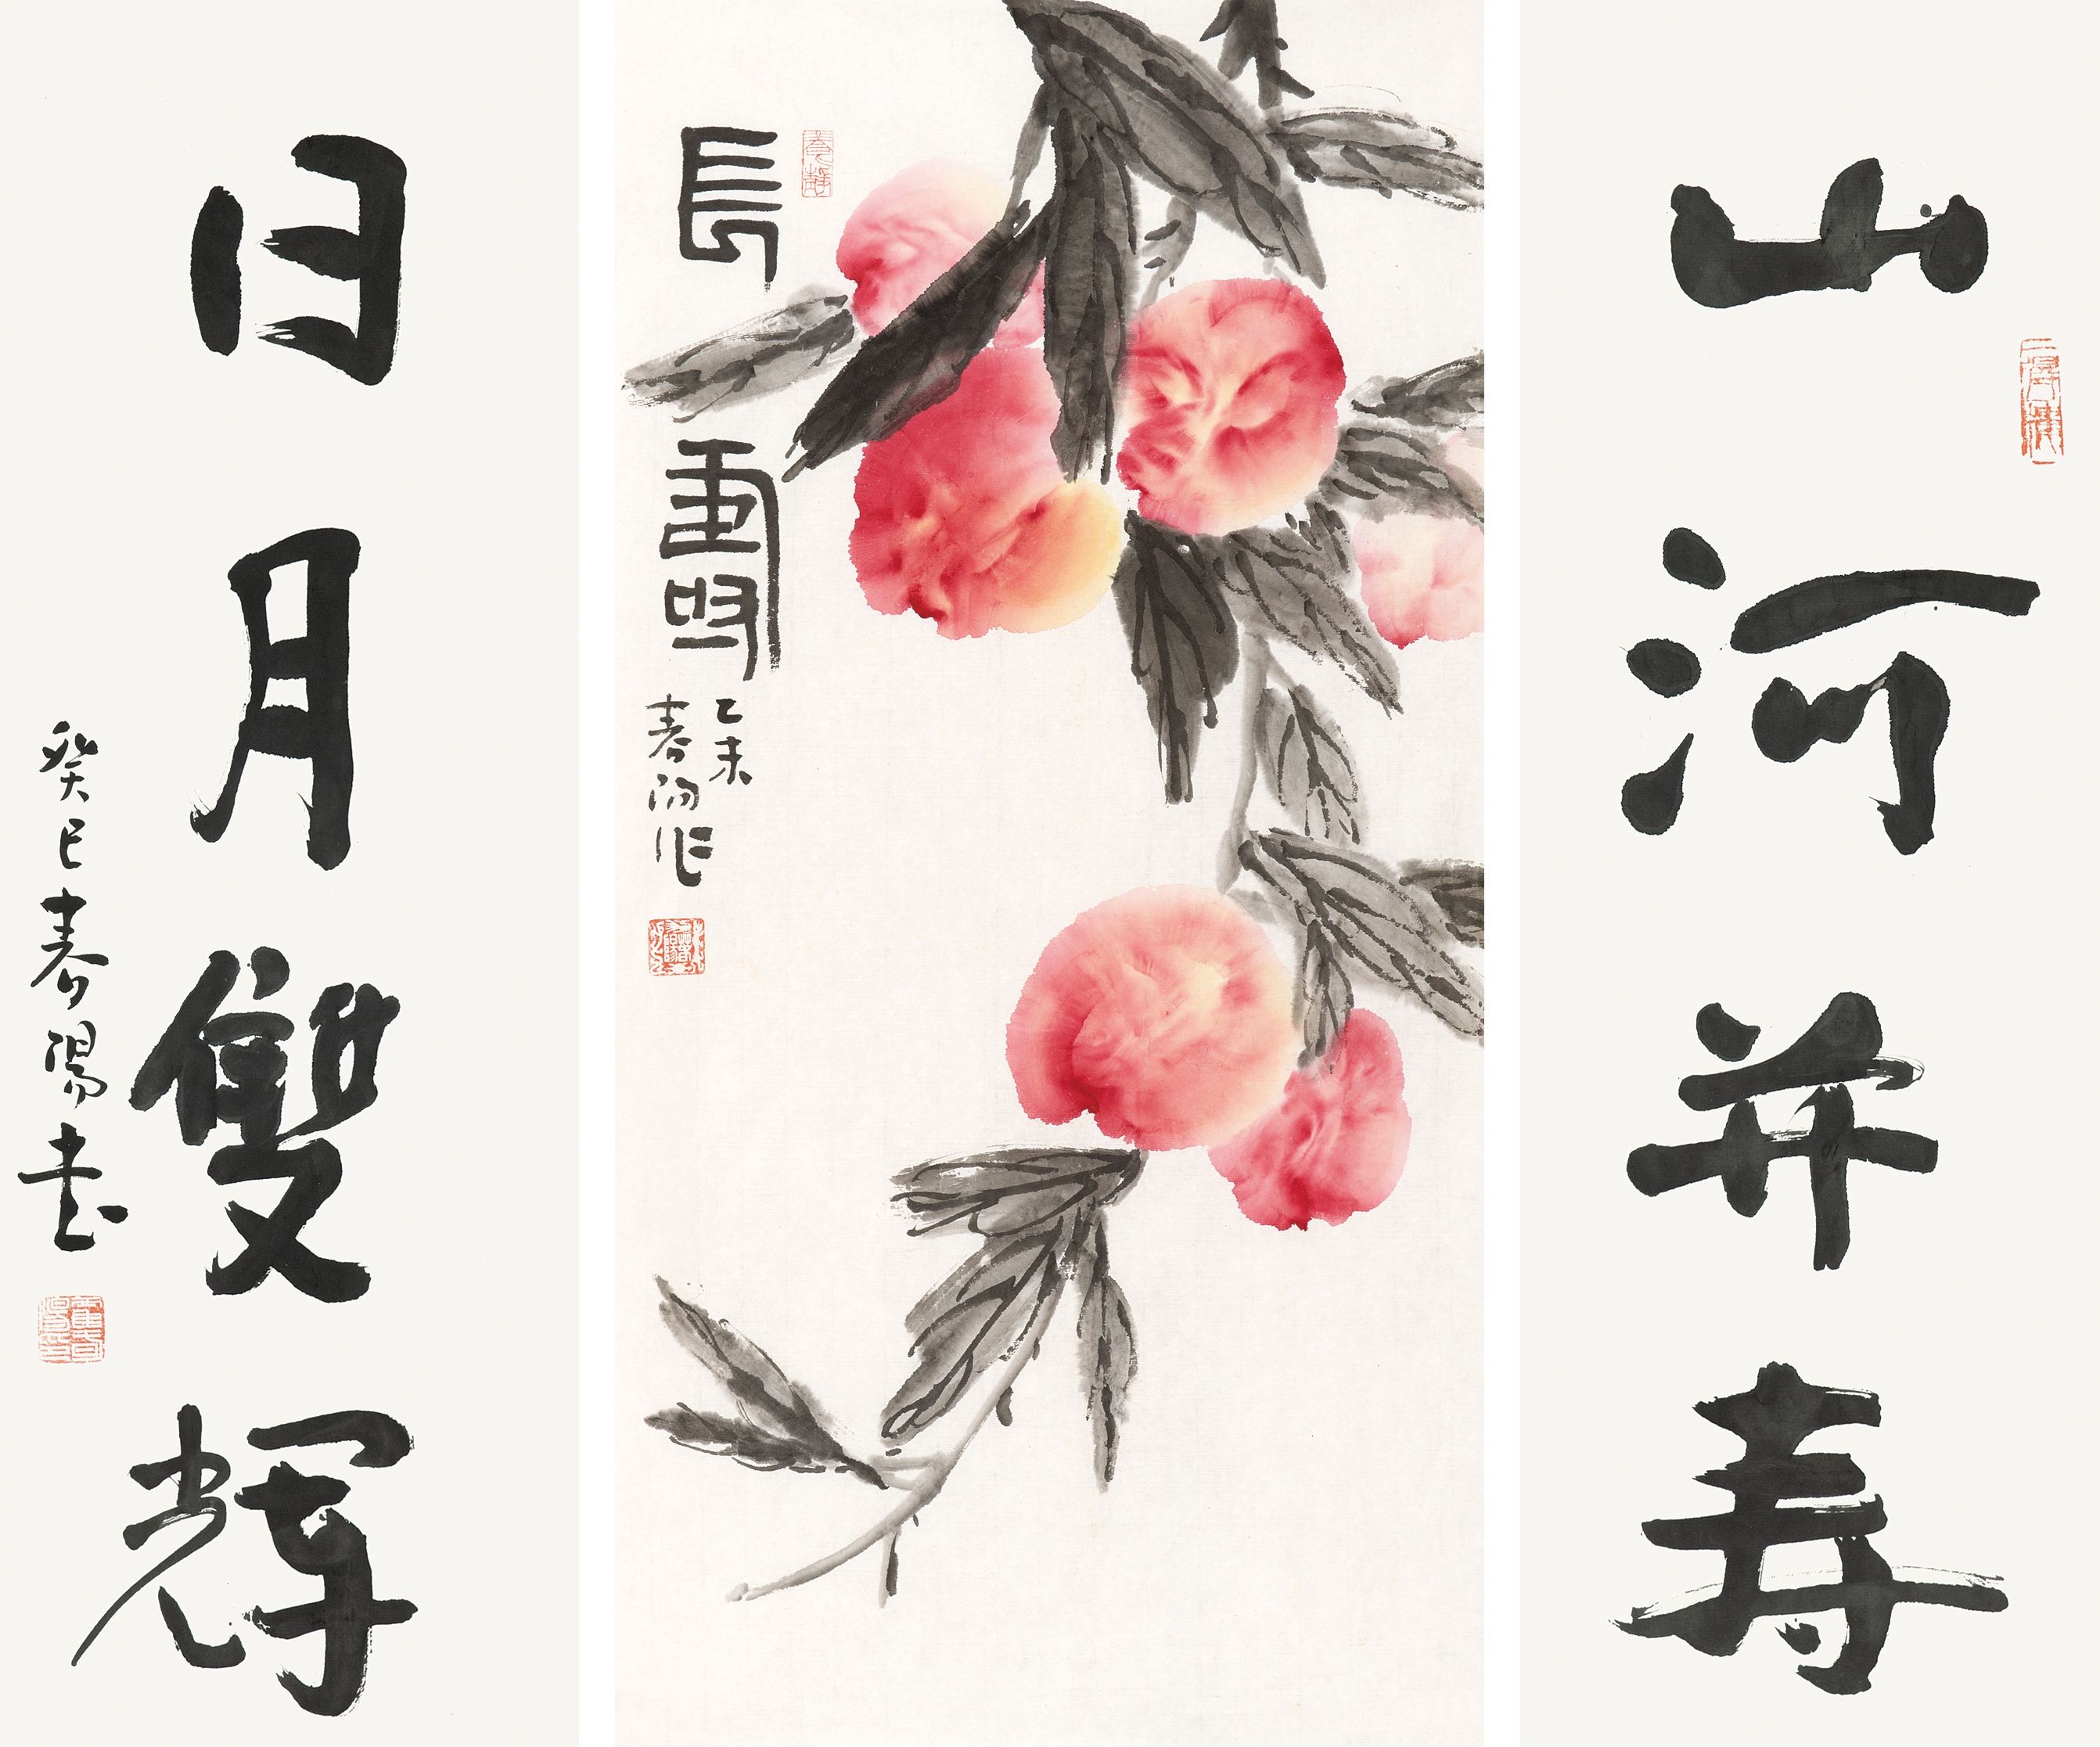 山河并寿
長壽
乙未
春陽作
日月雙輝
癸巳春陽書